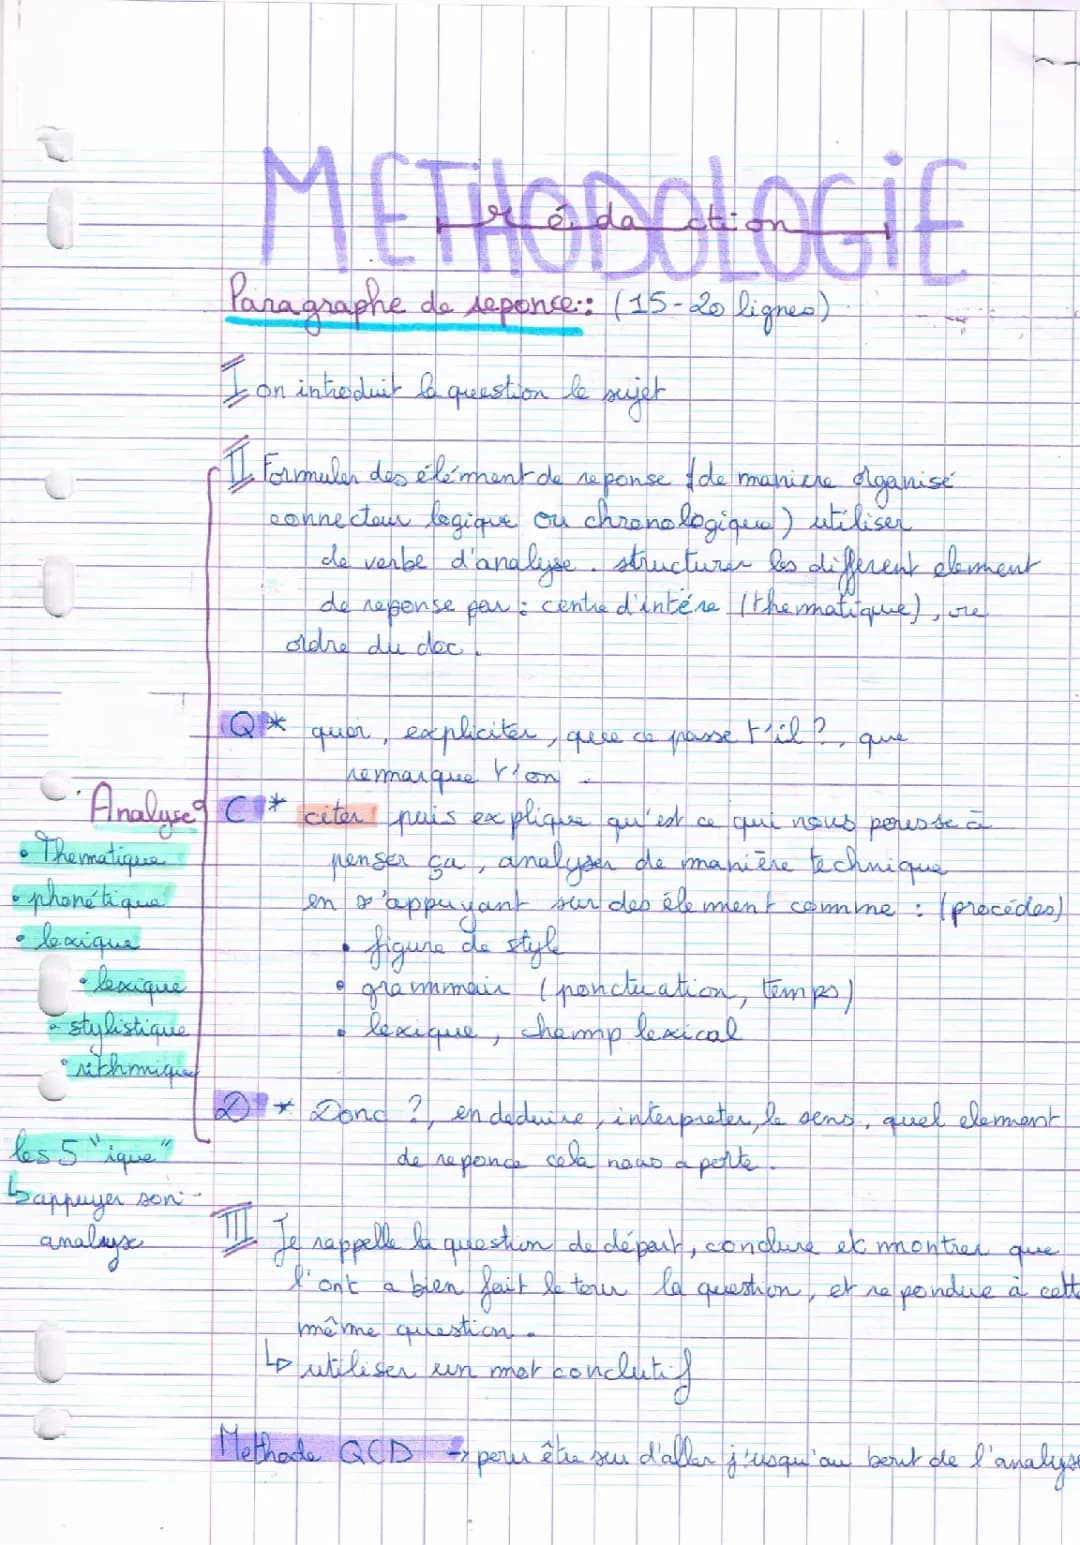 METHODOLOGIE
rédaction
Paragraphe de reponce:: (15-20 lignes)
I on introduit la question le sujet
II Formuler des élémment de reponse (de maniere organisé
connecteur logique ou chronologique) utiliser
de verbe d'analyse. structurer les different element
de reponse par : centre d'intére (thematique), ou
ordre du doc.
Q * quoi, expliciter, que ce passe t'il ?, que
remarque t'on.
Analyse C * citer puis explique qu'est ce qui nous pousse à
• Thematique penser ça, analyser de manière technique
• phonétique en s'appuyant sur des élement comme : (procédes)
• lexique • figure de style
• lexique • grammair (ponctuation, temps)
• stylistique • lexique, champ lexical
• rithmique
D * Donc ?, en deduire, interpreter, le sens, quel element
les 5 "ique" de reponce cela nous aporte.
↳ appuyer son
analyse
III Je rappelle la question de départ, conclure et montrer que
l'ont a bien fait le tour la question, et repondue à cette
même question.
↳ utiliser un mot conclutif
Methode QCD → pour être sur d'aller j'usqu'au bout de l'analyse